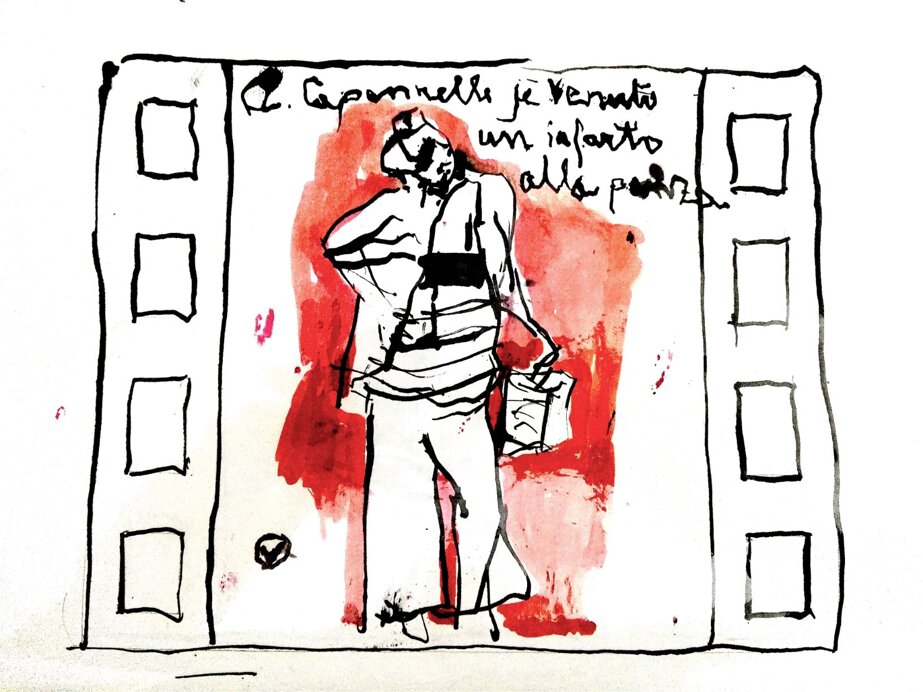 Capannelle jè venuto
un infarto
alla panza.